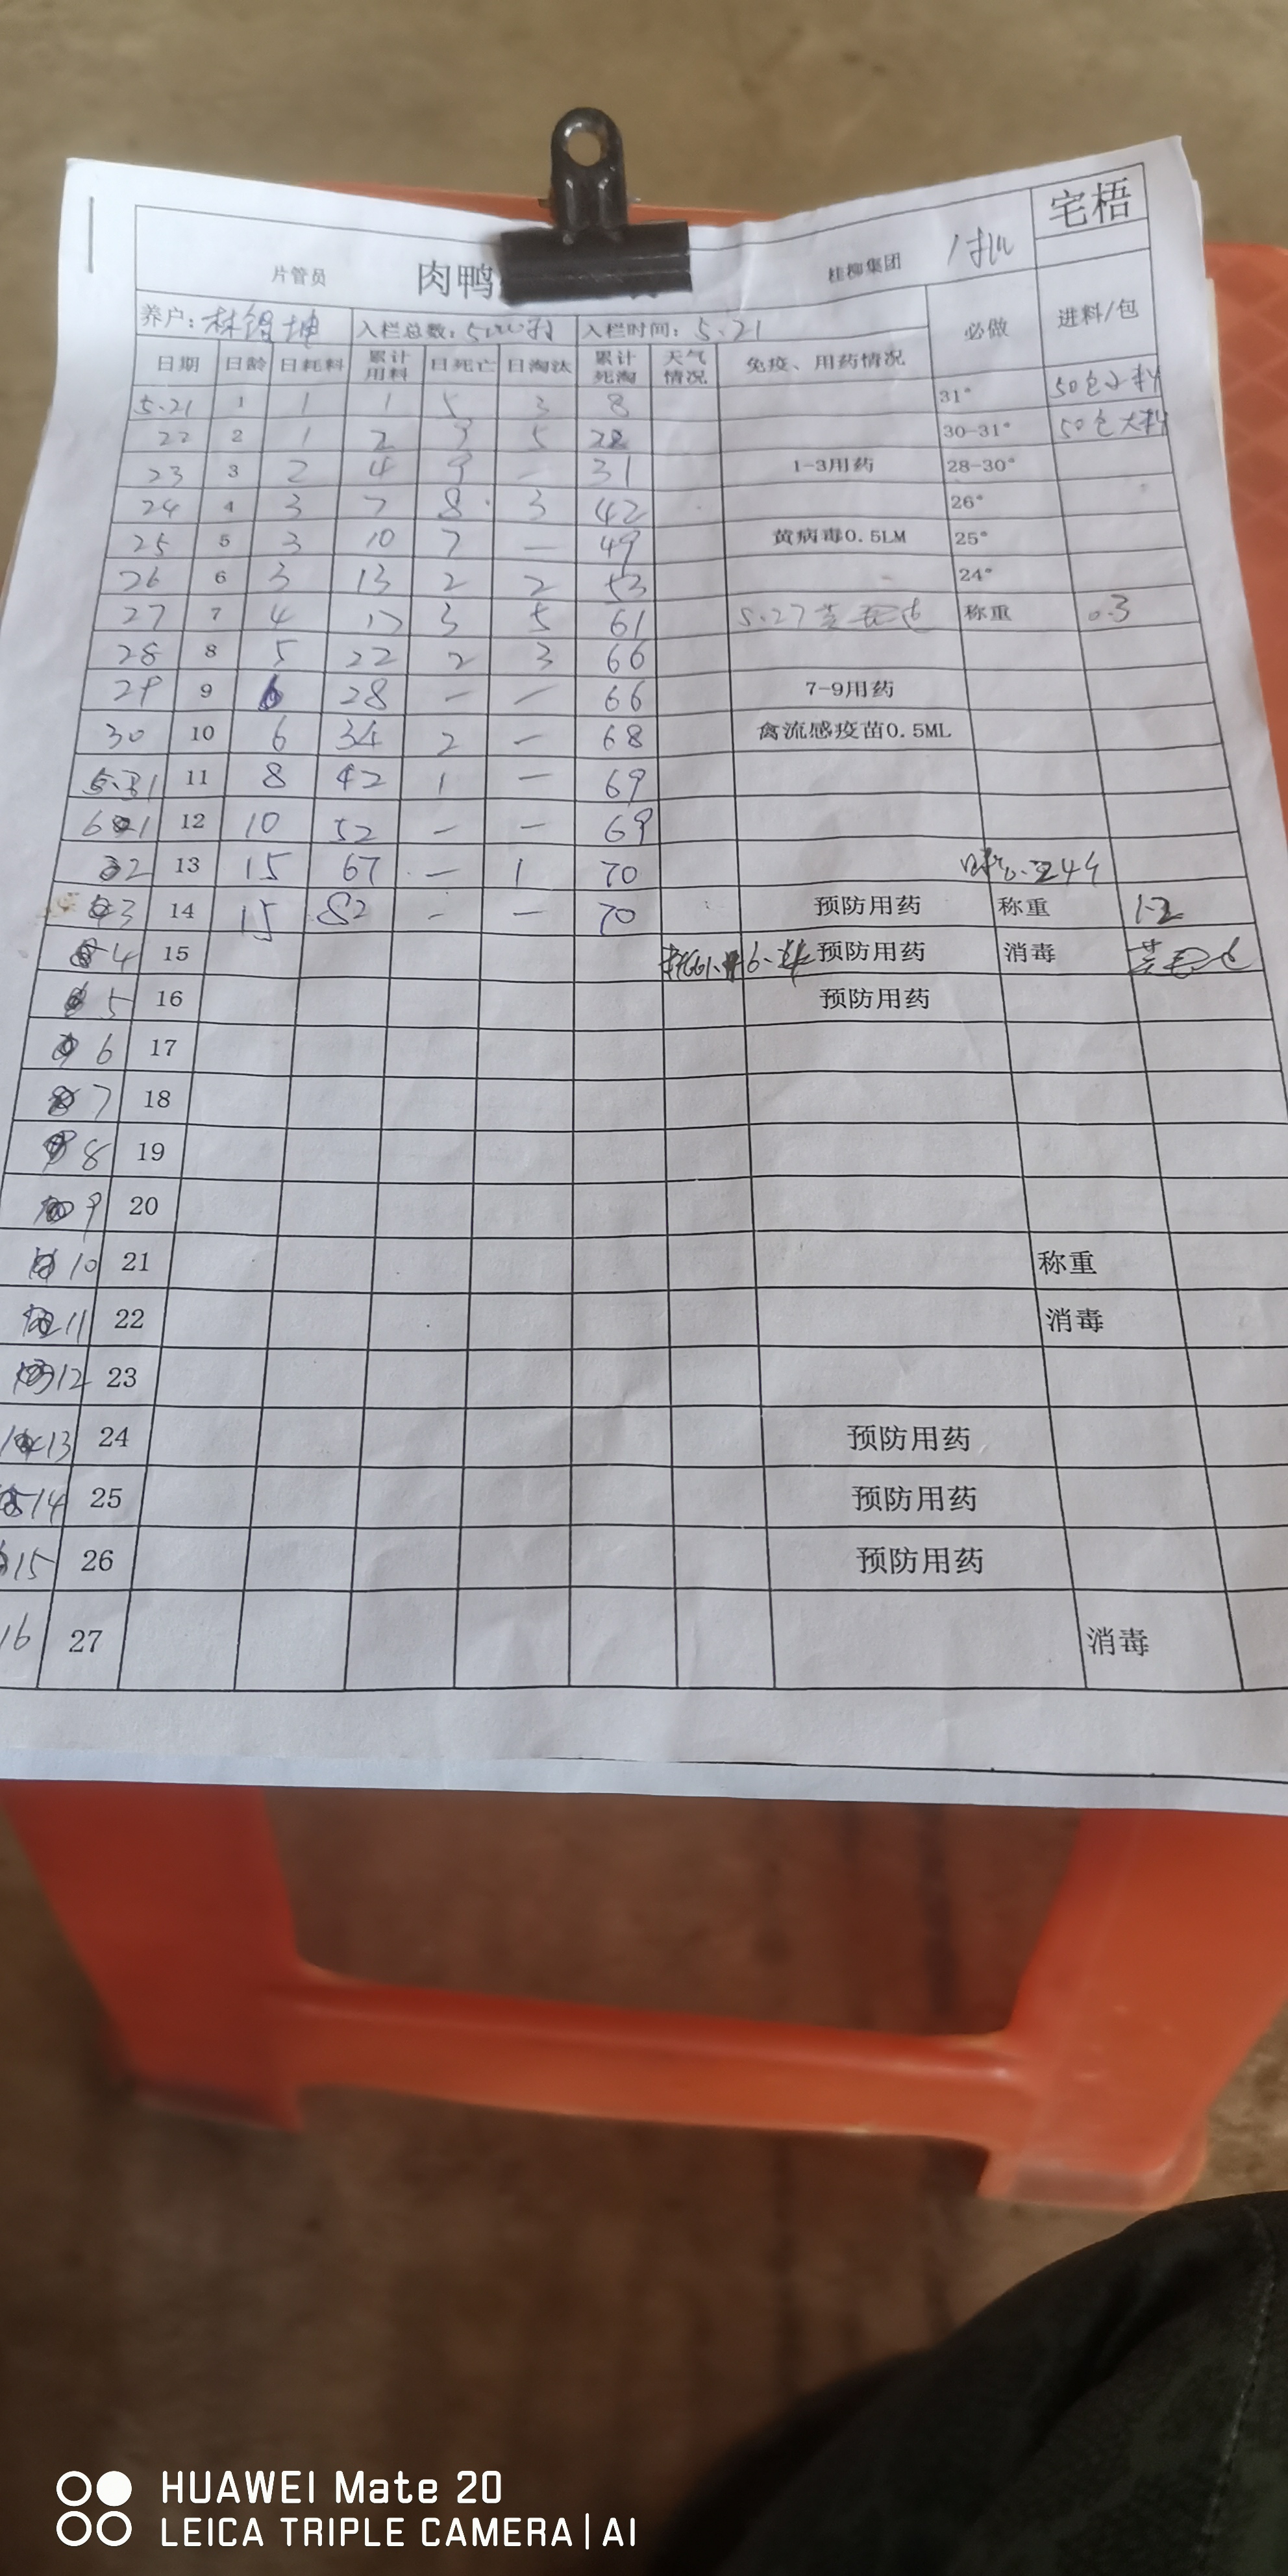 宅梧
片管员 肉鸭 桂柳集团 1批
养户: 林 坤 入栏总数: 入栏时间: 5.21 必做 进料/包
日期 日龄 日耗料 累计用料 日死亡 日淘汰 累计死淘 天气情况 免疫、用药情况
5.21 1 1 1 5 3 8 31° 50包小料
22 2 1 2 9 5 22 30-31° 50包大料
23 3 2 4 9 — 31 1-3用药 28-30°
24 4 3 7 8 3 42 26°
25 5 3 10 7 — 49 黄病毒0.5LM 25°
26 6 3 13 2 2 53 24°
27 7 4 17 3 5 61 5.27 称重 0.3
28 8 5 22 2 3 66
29 9 6 28 — — 66 7-9用药
30 10 6 34 2 — 68 禽流感疫苗0.5ML
5.31 11 8 42 1 — 69
6.1 12 10 52 — — 69
2 13 15 67 — 1 70
3 14 15 82 — — 70 预防用药 称重 1.2
4 15 预防用药 消毒
5 16 预防用药
6 17
7 18
8 19
9 20
10 21 称重
11 22 消毒
12 23
13 24 预防用药
14 25 预防用药
15 26 预防用药
16 27 消毒
HUAWEI Mate 20
LEICA TRIPLE CAMERA | AI